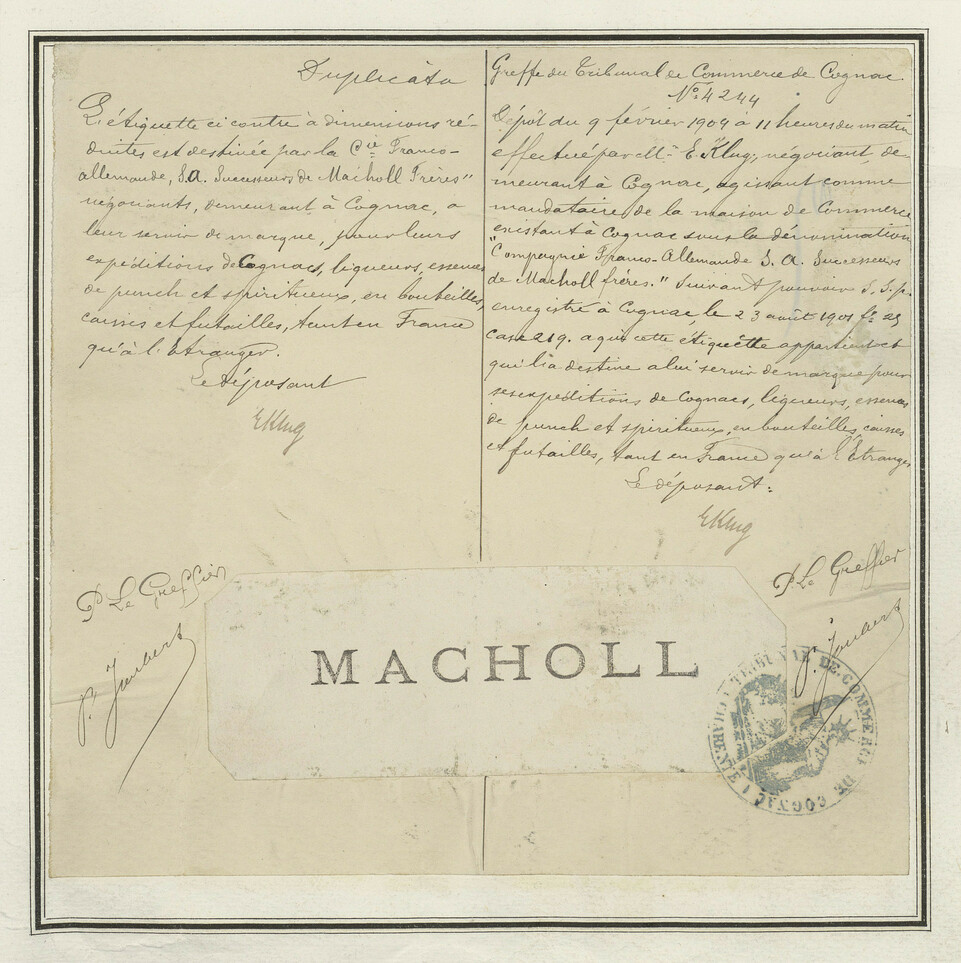 Duplicata
L'étiquette ci contre à dimensions ré-
duites est destinée par la Cie Franco-
allemande, S.A. Successeurs de Macholl Frères"
négociants, demeurant à Cognac, a
leur servir de marque, pour leurs
expéditions de Cognacs, liqueurs, essences
de punch et spiritueux, en bouteilles,
caisses et futailles, tant en France
qu'à l'Etranger.
Le déposant
EKlug
P. Le Greffier
P. Joubert
Greffe du Tribunal de Commerce de Cognac
No 4244
Dépôt du 9 février 1904 à 11 heures du matin
effectué par M. E. Klug, négociant, de-
meurant à Cognac, agissant comme
mandataire de la maison de Commerce
existant à Cognac sous la dénomination
"Compagnie Franco-Allemande S. A. Successeurs
de Macholl frères." Suivant pouvoir S. S. p.
enregistré à Cognac, le 23 août 1901 fo 25
Case 219. a qui cette étiquette appartient et
qui l'a destine a lui servir de marque pour
ses expéditions de Cognacs, liqueurs, essences
de punch et spiritueux, en bouteilles, caisses
et futailles, tant en France qu'à l'Etranger
Le déposant:
EKlug
P. Le Greffier
P. Joubert
MACHOLL
TRIBUNAL DE COMMERCE DE COGNAC (CHARENTE)